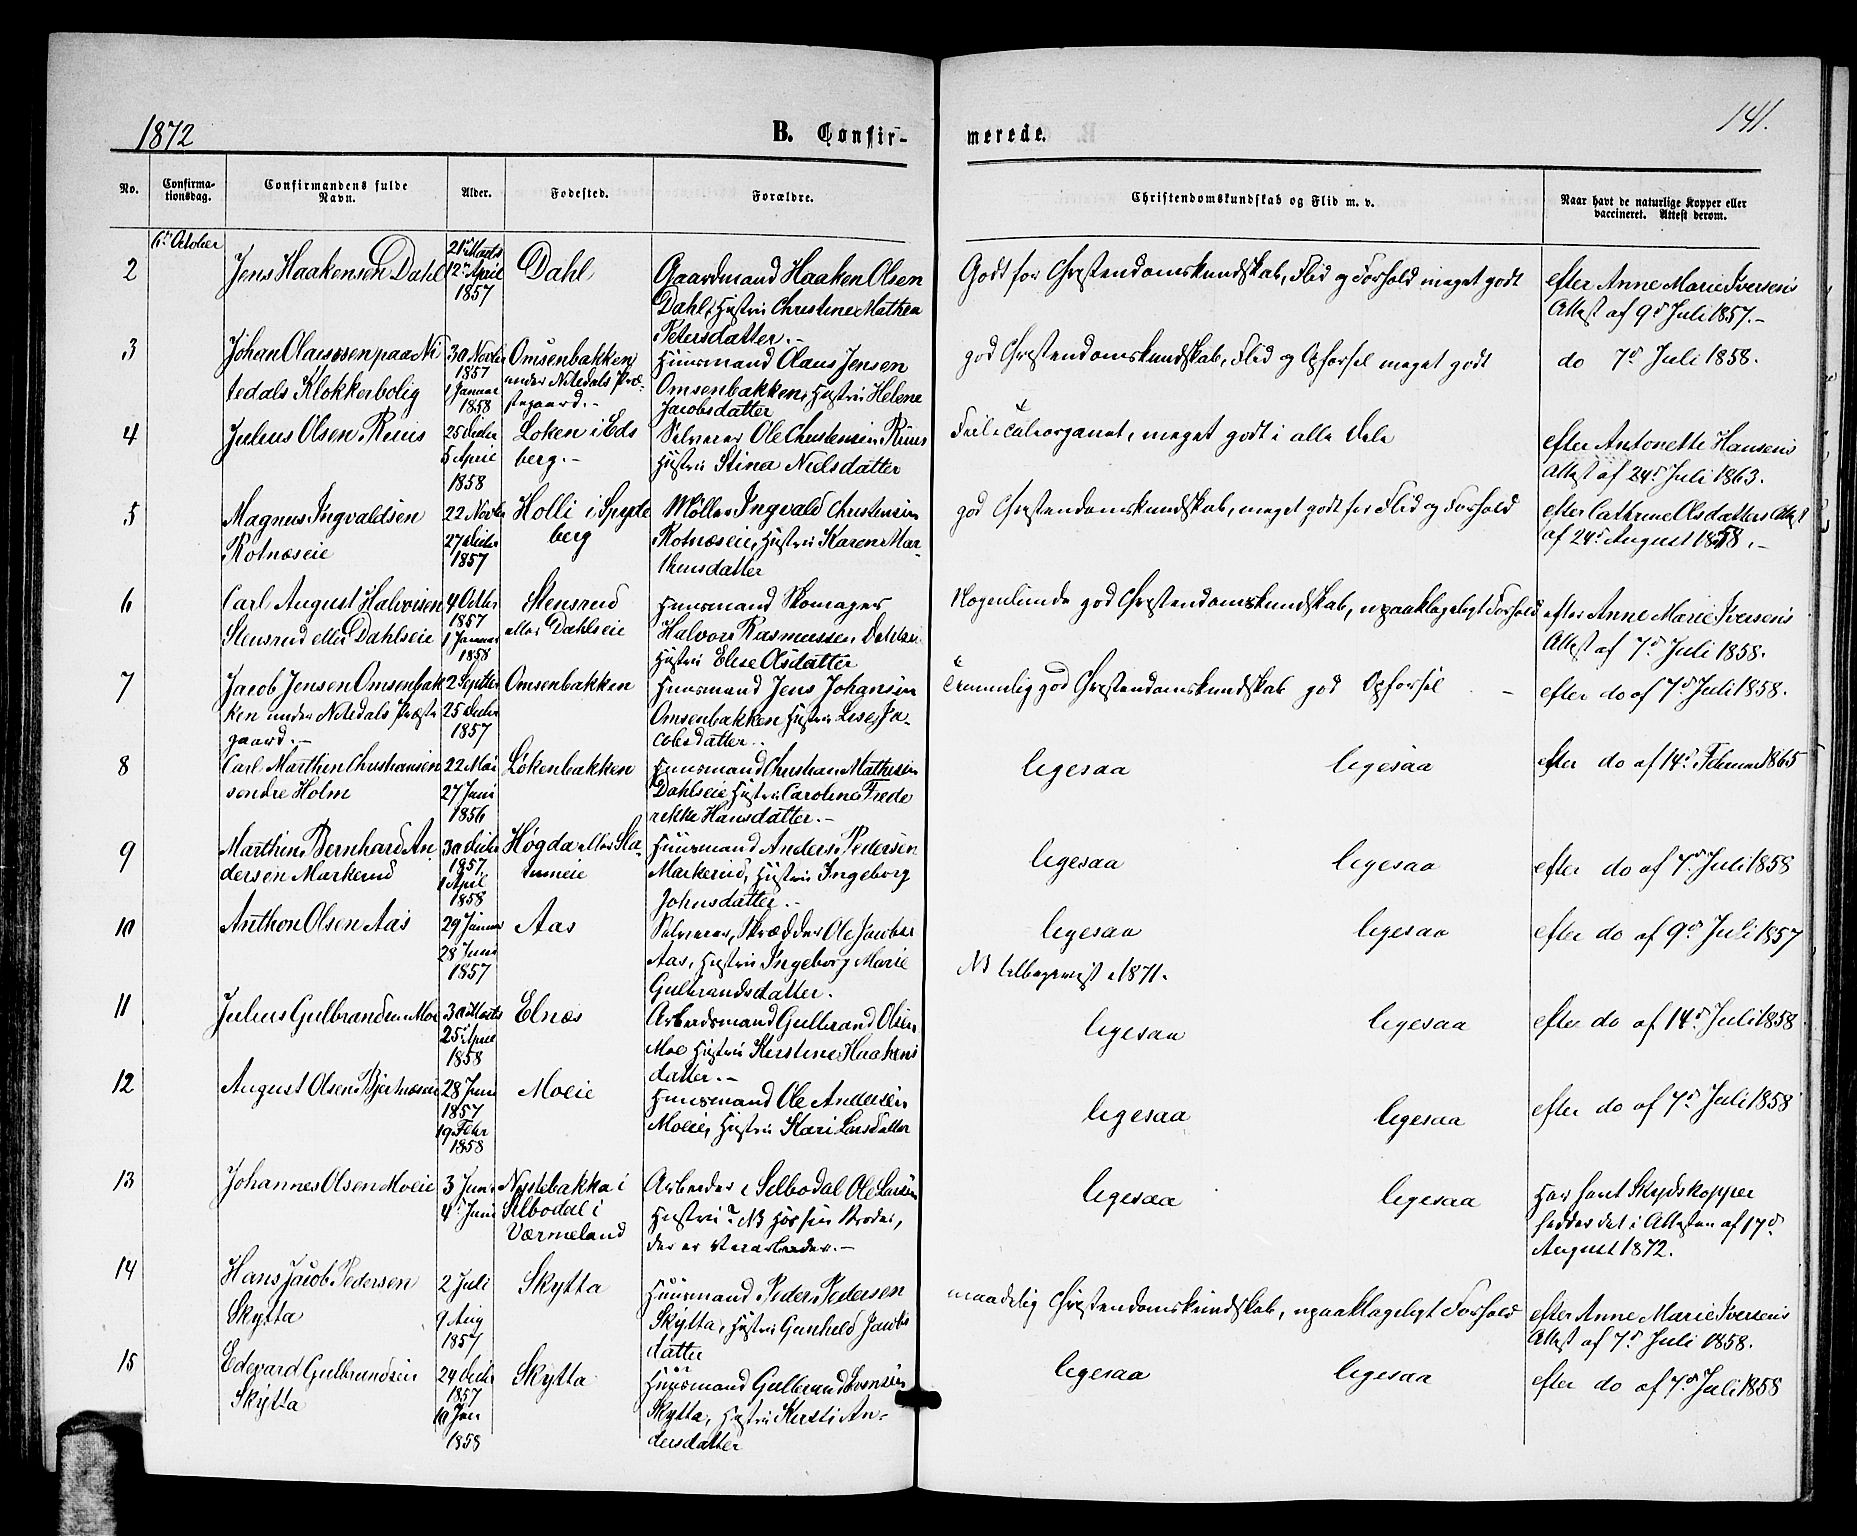 1872
B. Confir-
merede.
141.
No.
Confirma-
tionsdag.
Confirmandens fulde
Navn.
Alder.
Fødested.
Forældre.
Christendomskundskab og Flid m. v.
Naar havt de naturlige Kopper eller
vaccineret. Attest derom.
6te October
2
Jens Haakensen Dahl
21de Marts
12te April
1857
Dahl
Gaardmand Haaken Olsen
Dahl, Hustru Christine Mathea
Petersdatter.-
Godt for Christendomskundskab, Flid og Forhold meget godt
efter Anne Marie Iversens
Attest af 9d Juli 1857.-
3
Johan Olaussen paa Ni
tedals Klokkerbolig
30 Novbr
1857
1 Januar
1858
Omsenbakken
under Nitedals Præ-
stegaard.-
Huusmand Olaus Jensen
Omsenbakken, Hustru Helene
Jacobsdatter
god Christendomskundskab, Flid og Opførsel meget godt
do 7d Juli 1858.
4
Julius Olsen Ruus
25 Decbr
5 April
1858
Løken i Eds
berg.-
Selveier Ole Christensen Ruus
Hustru Stina Nielsdatter
Feil i Taleorganet, meget godt i alle Dele
efter Antonette Hansens
Attest af 24d Juli 1863.
5
Magnus Ingvaldsen
Rotnæseie
22 Novbr
27 Decbr
1857
Holli i Spyde
berg
Møller Ingvald Christensen
Rotnæseie, Hustru Karen Mar-
thensdatter
god Christendomskundskab, meget godt for Flid og Forhold
efter Cathrine Olsdatters Attest
af 24d August 1858.-
6
Carl August Halvorsen
Stensrud eller Dahlseie
4 Octbr
1857
1 Januar
1858
Stensrud
eller Dahlseie
Huusmand Skomager
Halvor Rasmussen Dahlsei
Hustru Elise Olsdatter
Nogenlunde god Christendomskundskab, upaaklageligt Forhold
efter Anne Marie Iversens
Attest af 7d Juli 1858.
7
Jacob Jensen Omsenbak
ken under Nitedals Præste
gaard.-
2 Septbr
25 Decbr
1857
Omsenbakken
Huusmand Jens Johansen
Omsenbakken Hustru Lise Ja-
cobsdatter.
Temmelig god Christendomskundskab god Opførsel -
efter do af 7d Juli 1858.
8
Carl Marthin Christiansen
søndre Holm
22 Mai
27 Juni
1856
Løkenbakken
Huusmand Christian Mathisen
Dahlseie Hustru Caroline Frede
rikke Hansdatter.-
legesaa
legesaa
efter do af 14d Februar 1865
9
Marthin Bernhard An-
dersen Markerud
30 Decbr
1857
1 April
1858
Høgda eller Sla-
Huusmand Anders Pedersen
Markerud, Hustru Ingeborg
Johnsdatter.-
legesaa
legesaa
efter do af 7d Juli 1858
10
Anthon Olsen Aas
29 Januar
28 Juni
1857
Aas
Selveier, Skrædder Ole Jacobsen
Aas, Hustru Ingeborg Marie
Gulbrandsdatter.
legesaa
legesaa
NB tilbageviist i 1871.
efter do af 9d Juli 1857
11
Julius Gulbrandsen Moe
30 Marts
25 April
1858
Elnæs
Arbeidsmand Gulbrand Olsen
Moe Hustru Kerstine Haakens
datter.-
legesaa
legesaa
efter do af 14d Juli 1858
12
August Olsen Bjertnæseie
28 Juni
1857
19 Febr
1858
Moeie
Huusmand Ole Andersen
Moeie, Hustru Kari Larsdatter
legesaa
legesaa
efter do af 7d Juli 1858
13
Johannes Olsen Moeie
3 Juni
4 Juni
Nystebakka i
Silbodal i
Værmeland
Arbeider i Silbodal Ole Larsen
Hustru? NB Hos sin Broder,
der er Veiarbeider.-
legesaa
legesaa
Har havt Skydskopper
hedder det i Attesten af 17d
August 1872.
14
Hans Jacob Pedersen
Skytta
2 Juli
9 Aug
1857
Skytta
Huusmand Peder Pedersen
Skytta, Hustru Gunhild Jacobs
datter
maadelig Christendomskundskab, upaaklageligt Forhold
efter Anne Marie Iversens
Attest af 7d Juli 1858.
15
Edevard Gulbrandsen
Skytta
24 Decbr
1857
10 Jan
1858
Skytta
Huusmand Gulbrand Svensen
Skytta, Hustru Kersti An-
dersdatter
legesaa
legesaa
efter do af 7d Juli 1858